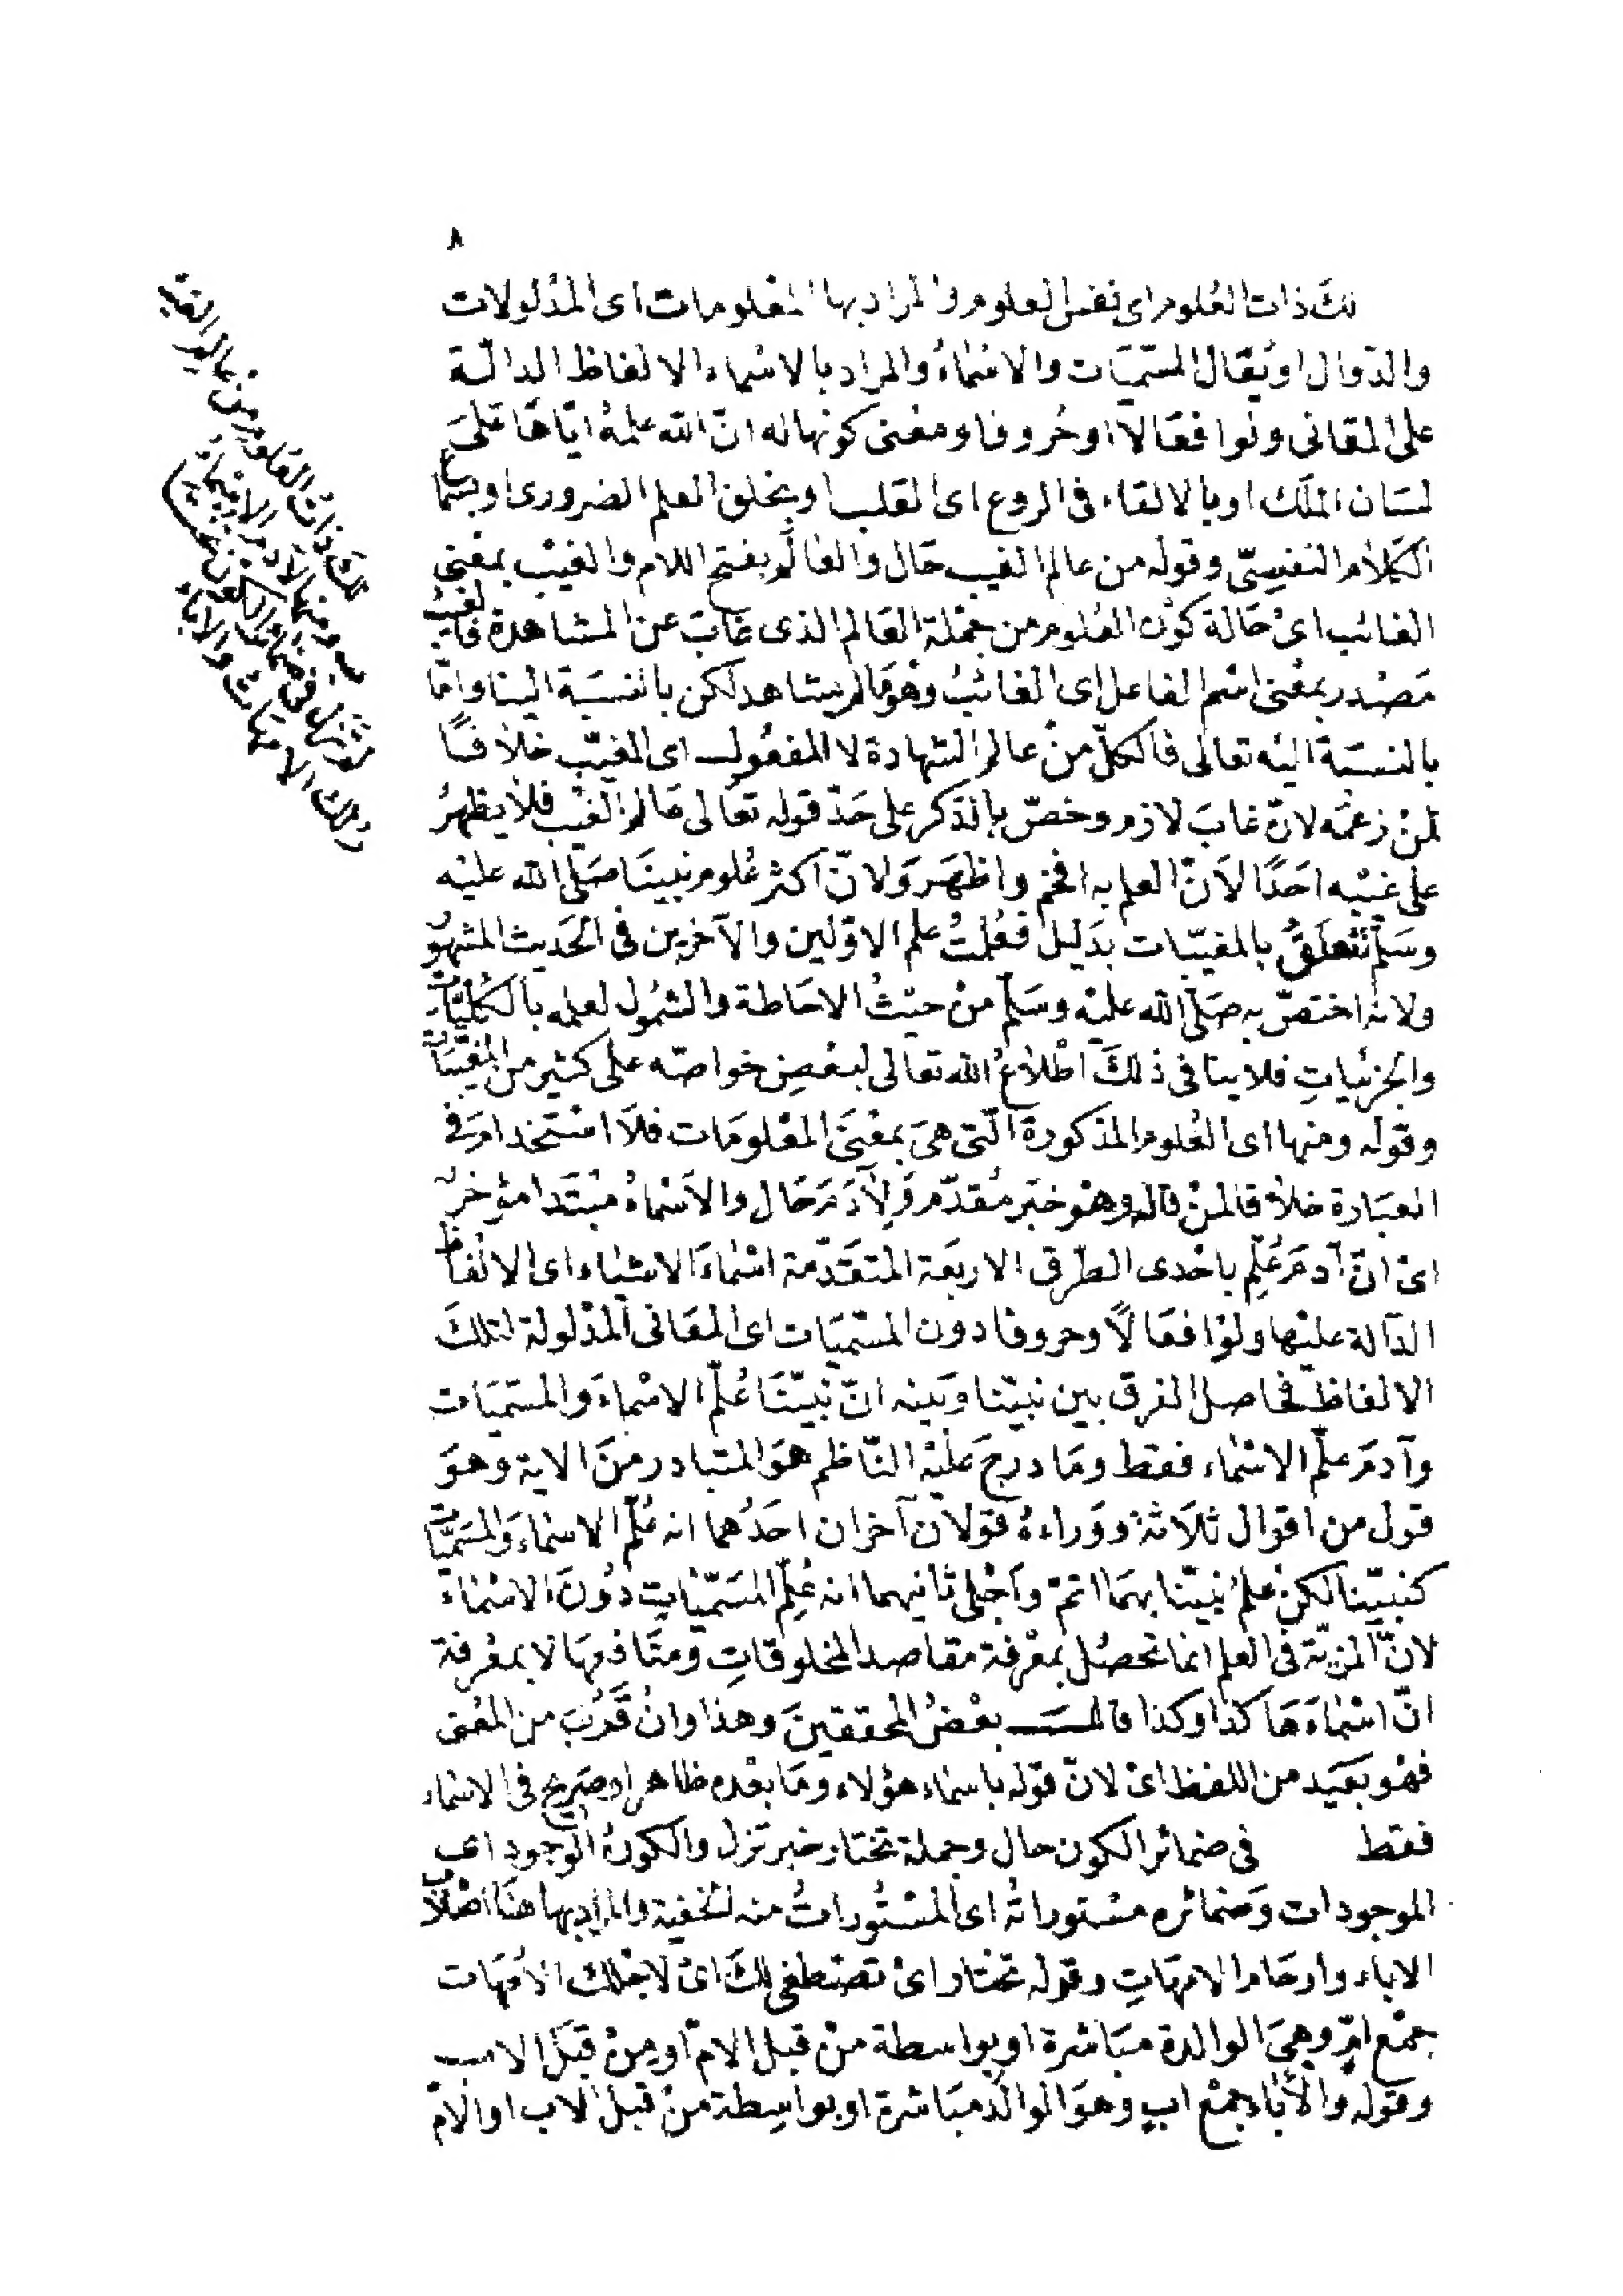 ٨
لك ذات العلوم اى نفس العلوم والمراد بها المعلومات اى المدلولات
والدّوال او يقال المسمّيات والاسماء والمراد بالاسماء الالفاظ الدالّة
على المعانى ولو افعالا او حروفا ومعنى كونها له انّ الله علمه ايّاها على
لسان الملك او بالالقاء فى الروع اى القلب او بخلق العلم الضرورى او بسماع
الكلام النفسىّ وقوله من عالم الغيب حال والعالَم بفتح اللام والغيب بمعنى
الغائب اى حالة كون العلوم من جملة العالم الذى غاب عن المشاهدة فالغيب
مصدر بمعنى اسم الفاعل اى الغائب وهو مالم يشاهد لكن بالنسبة الينا وامّا
بالنسبة اليه تعالى فالكلّ من عالم الشهادة لا المفعول اى المغيّب خلافًا
لمن زعمه لانّ غاب لازم وخصّ بالذكر على حدّ قوله تعالى عالم الغيب فلا يظهر
على غيبه احدًا لانّ العلم به افخم واظهر ولانّ اكثر علوم نبينا صلى الله عليه
وسلم تتعلق بالمغيّبات بدليل فعُلمتُ علم الاوّلين والآخرين فى الحديث المشهور
ولانه اختصّ به صلى الله عليه وسلم من حيث الاحاطة والشمول لعلمه بالكليّات
والجزئيات فلا ينافى ذلك اطلاع الله تعالى لبعض خواصّه على كثير من المغيّبات
وقوله ومنها اى العلوم المذكورة الّتى هى بمعنى المعلومات فلا استخدام فى
العبارة خلافا لمن قاله وهو خبر مقدّم ولآدم حال والاسماء مبتدا مؤخر
اى انّ آدم عُلّم باحدى الطّرق الاربعة المتقدّمة اسماء الاشياء اى الالفاظ
الدآلة عليها ولو افعالًا وحروفا دون المسمّيات اى المعانى المدلولة لتلك
الالفاظ فحاصل الفرق بين نبيّنا وبينه انّ نبيّنا عُلّم الاسماء والمسمّيات
وآدم علّم الاسماء فقط وما درج عليه النّاظم هو المتبادر من الاية وهو
قول من اقوال ثلاثة ووراءه قولان آخران احدهما انه عُلّم الاسماء والمسمّيات
كنبيّنا لكن علم نبيّنا بهما اتمّ واجلى ثانيهما انه عُلّم المسمّيات دون الاسماء
لانّ المزيّة فى العلم انما تحصل بمعرفة مقاصد المخلوقات ومنافعها لا بمعرفة
انّ اسماءها كذا وكذا قالـــــه بعض المحققين وهذا وان قرب من المعنى
فهو بعيد من اللفظ اى لانّ قوله باسماء هؤلاء وما بعده ظاهر او صريح فى الاسماء
فقط فى ضمائر الكون حال وجملة تختار خبر تزل والكون الوجود اى
الموجودات وضمائره مستوراته اى المستورات منه الخفية والمراد بها هنا اصلاب
الاباء وارحام الامهات وقوله تختار اى تصطفى لك اى لاجلك الامّهات
جمع امّ وهى الوالدة مباشرة او بواسطة من قبل الامّ او من قبل الاب
وقوله والأباء جمع اب وهو الوالد مباشرة او بواسطة من قبل الاب او الامّ
لك ذات العلوم من عالم الغيـ
ـب ومنها لآدم الاسماء
لم تزل فى ضمائر الكون تختا
ر لك الامهات والاباء